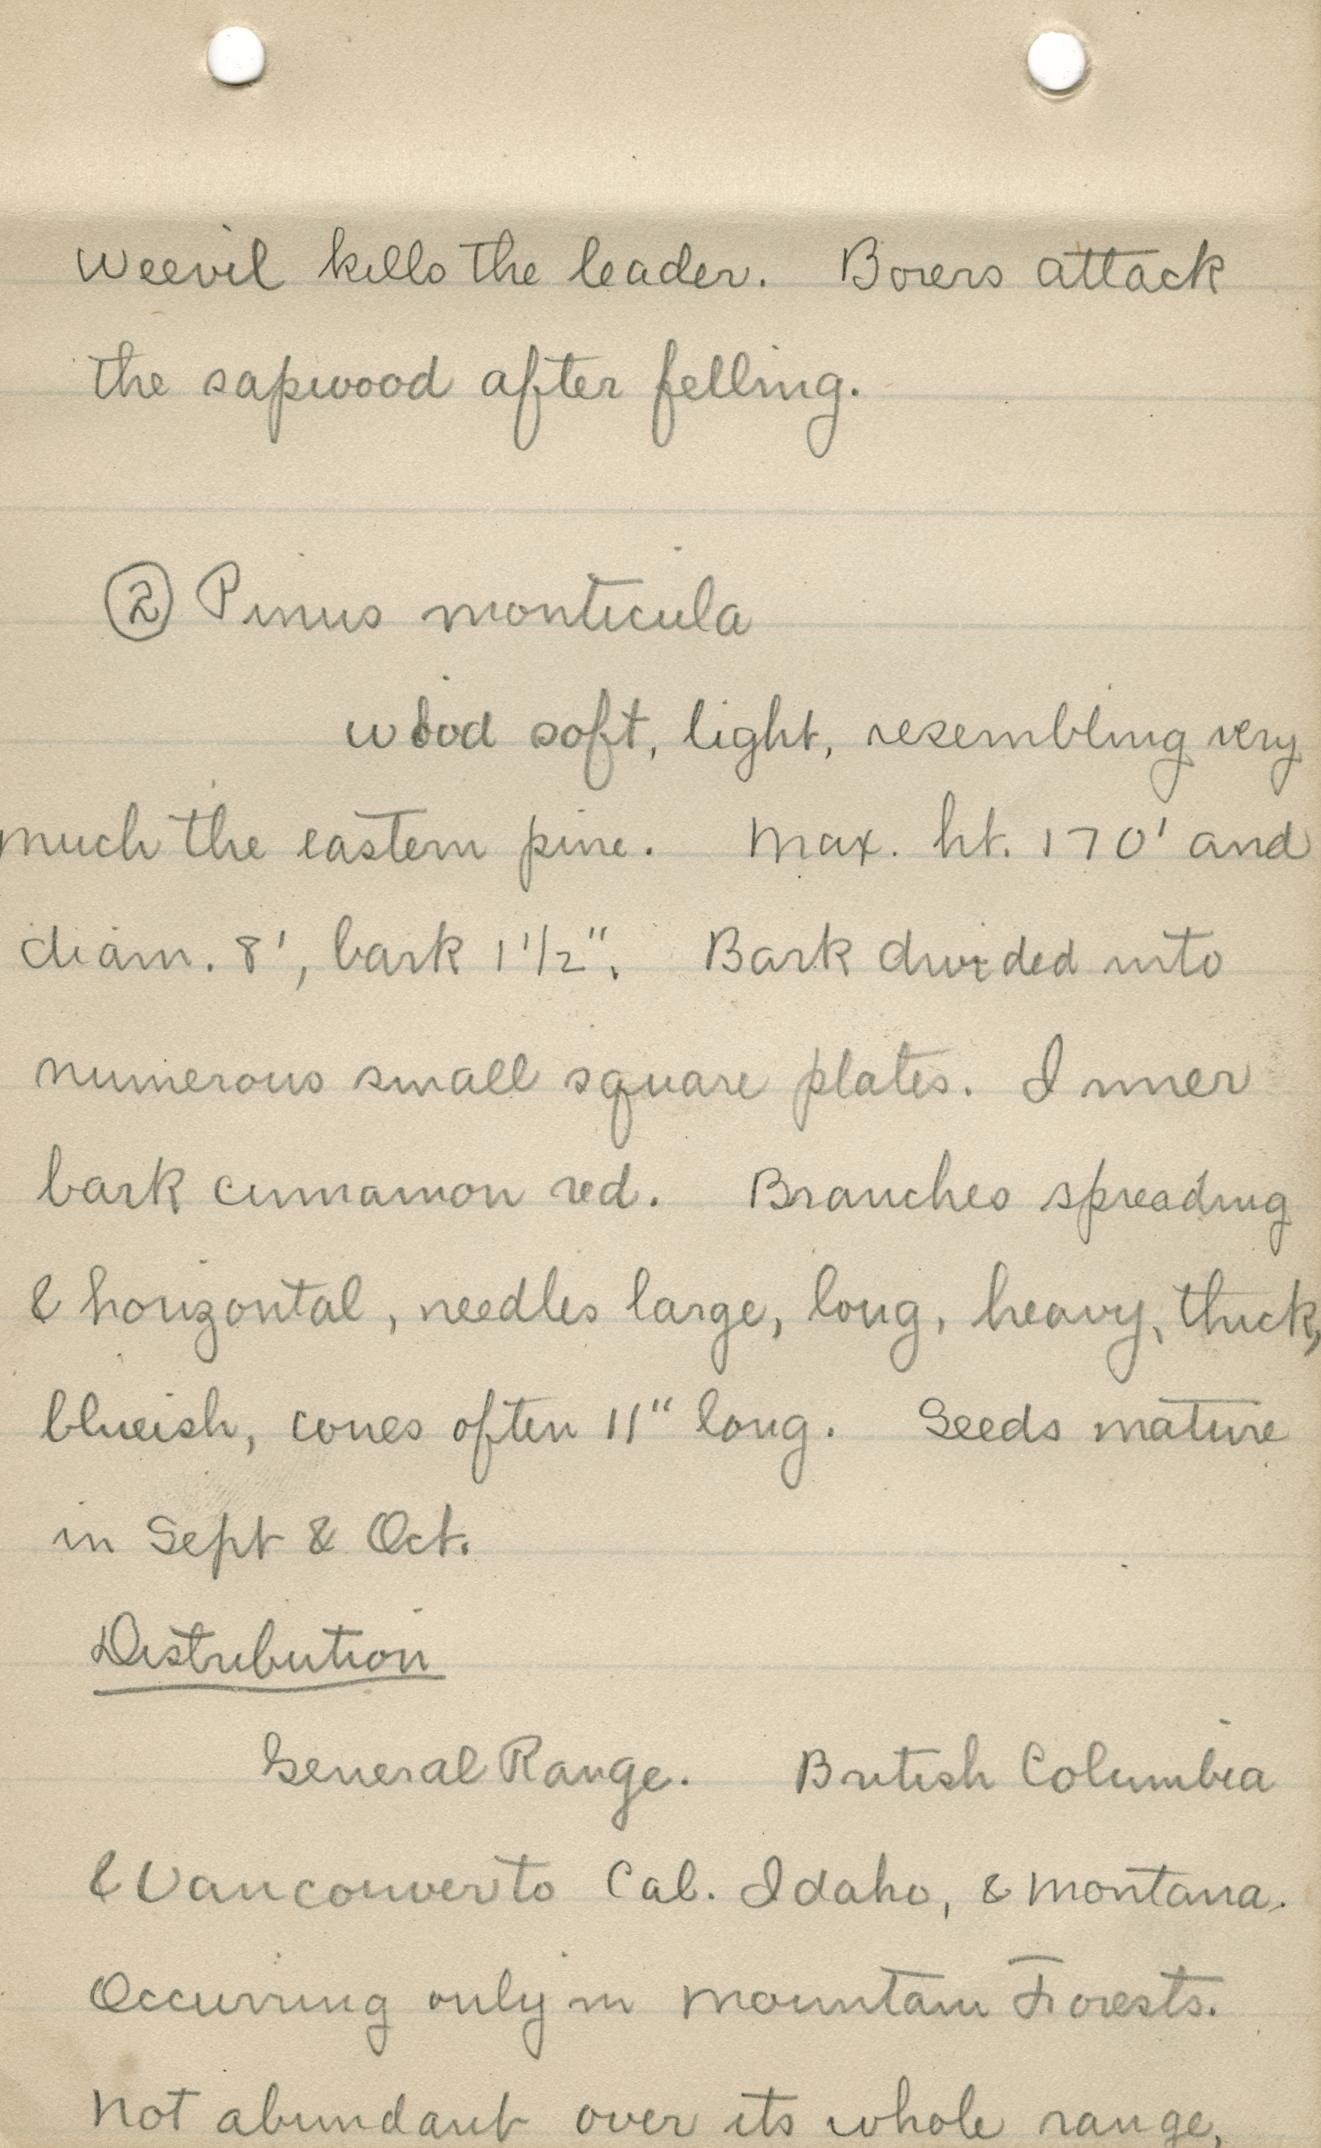 Weevil kills the leader. Borers attack
the sapwood after felling.
② Pinus monticula
wood soft, light, resembling very
much the eastern pine. Max. ht. 170' and
diam. 8', bark 1 1/2". Bark divided into
numerous small square plates. Inner
bark cinnamon red. Branches spreading
& horizontal, needles large, long, heavy, thick,
blueish, cones often 11" long. Seeds mature
in Sept & Oct.
Distribution
General Range. British Columbia
& Vancouver to Cal. Idaho, & Montana.
Occurring only in Mountain Forests.
Not abundant over its whole range,